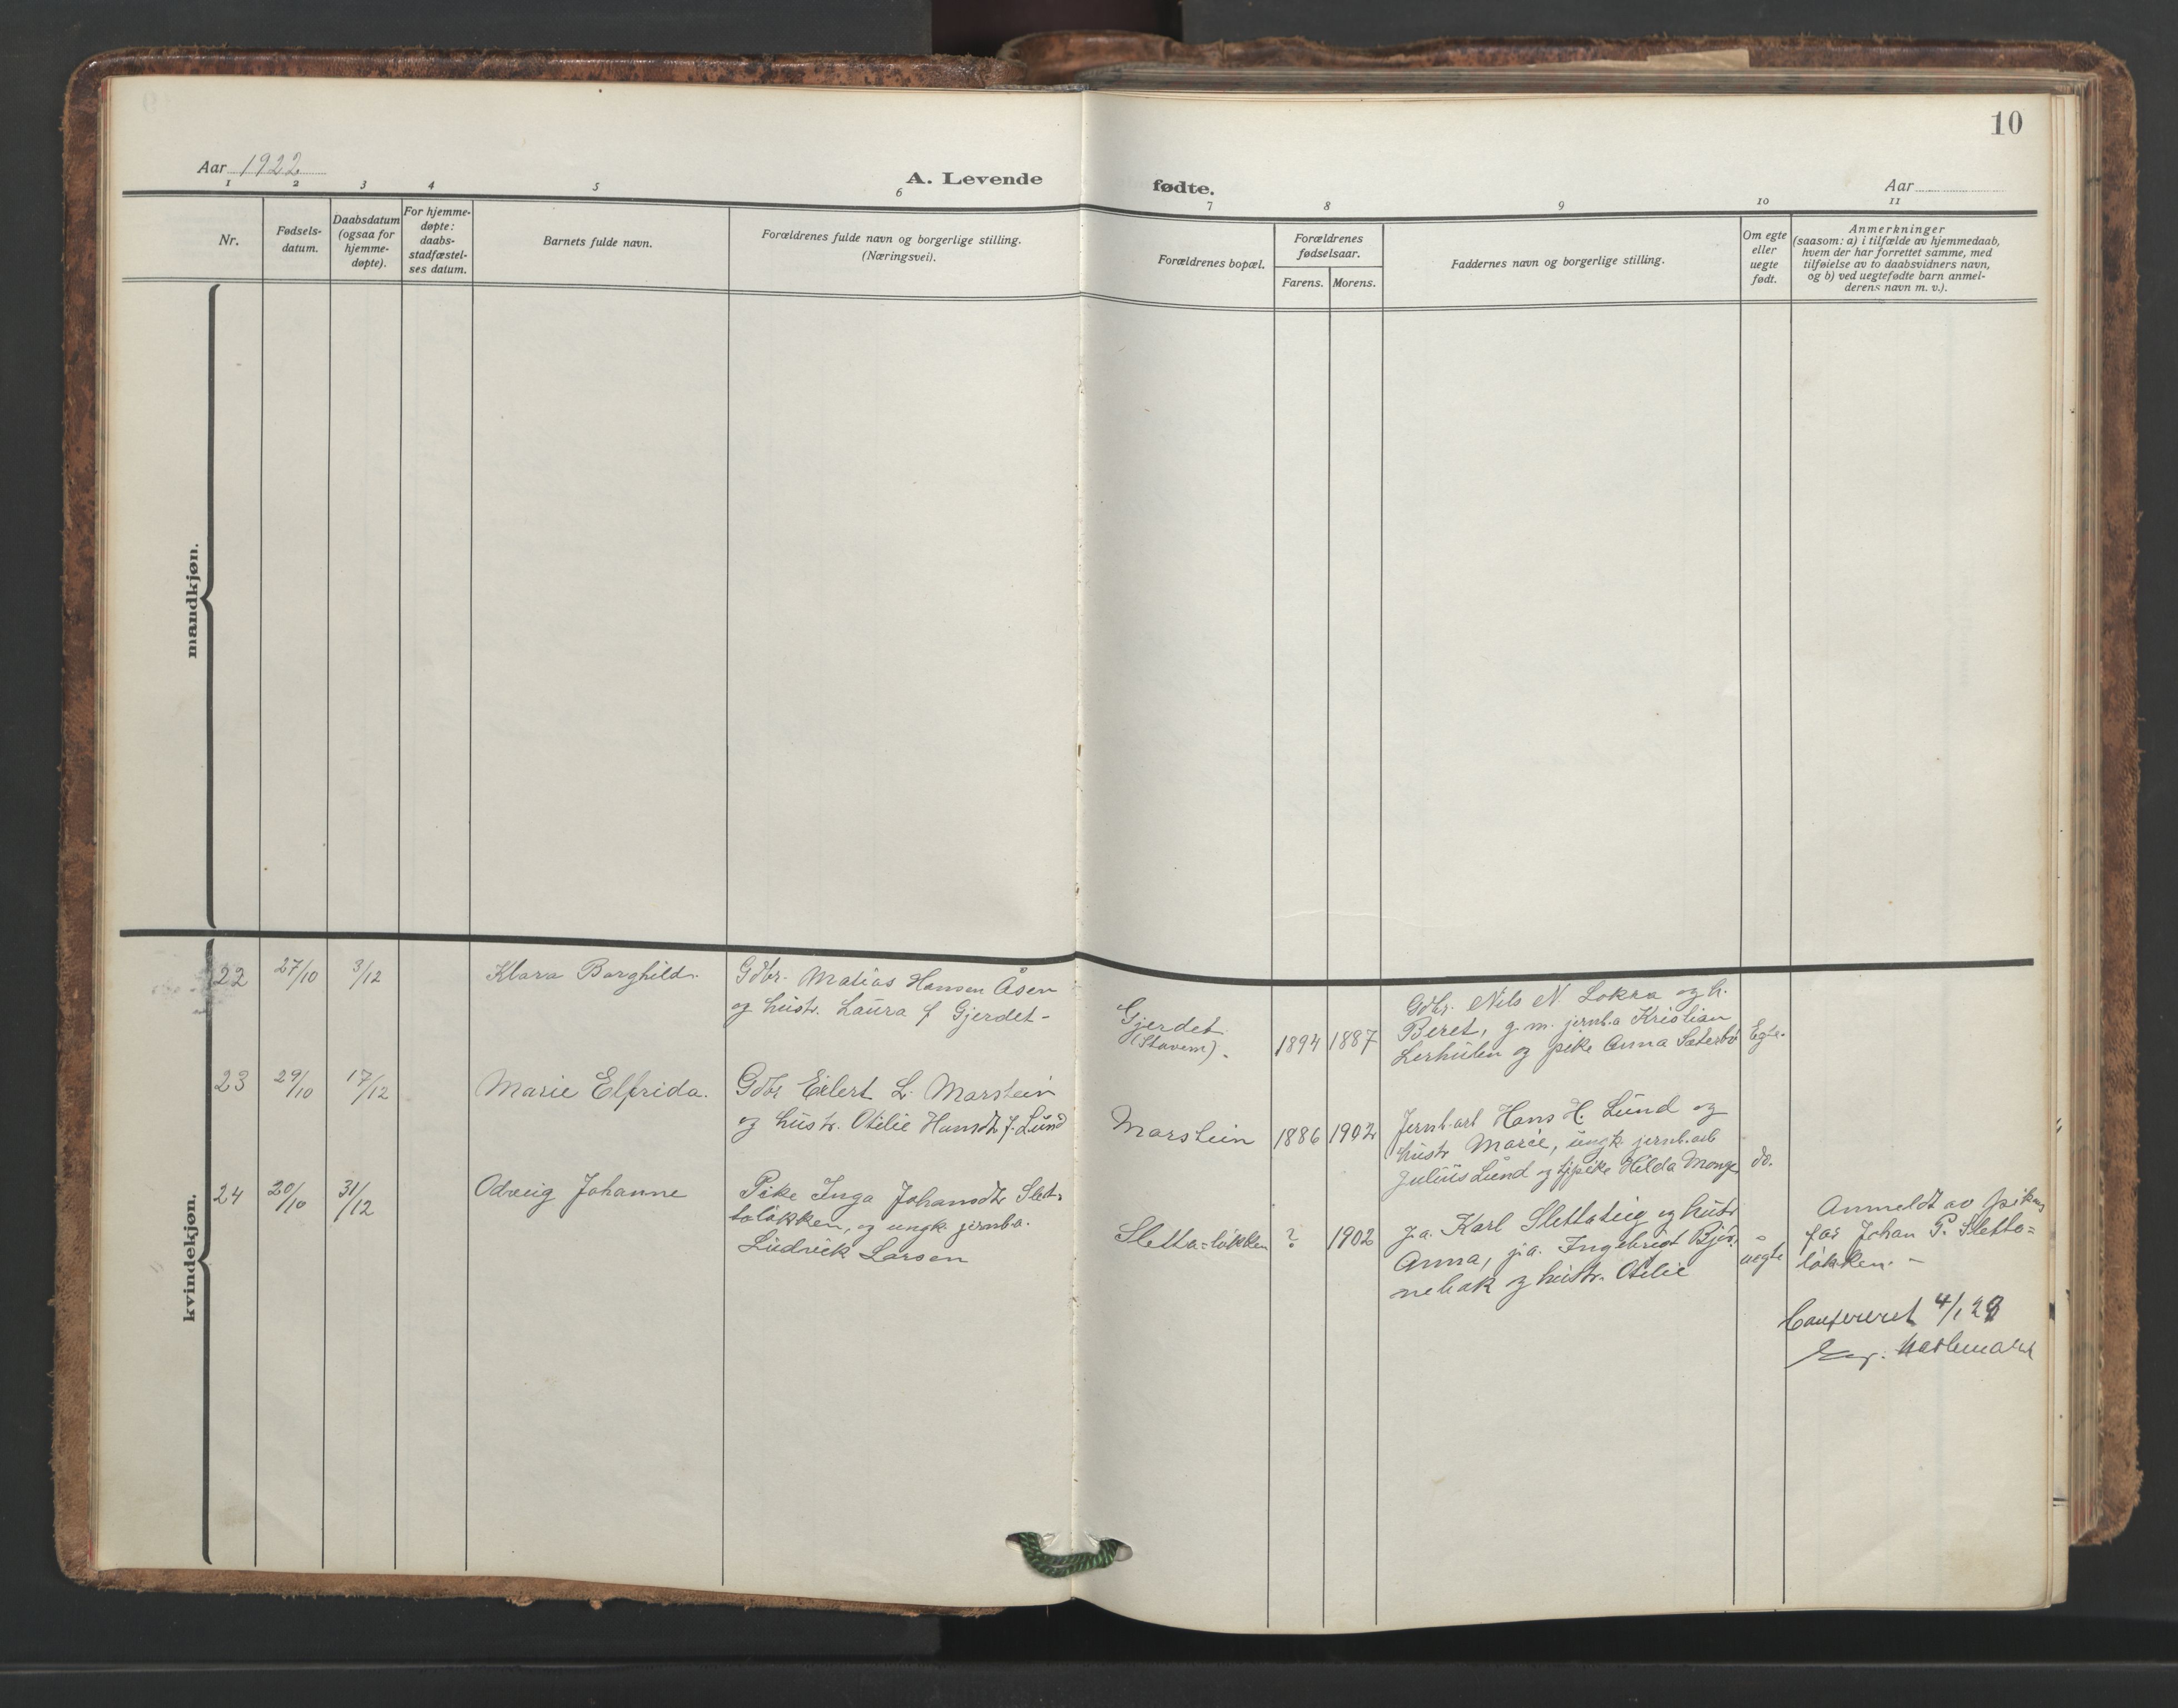 10
Aar 1922
A. Levende fødte.
Aar
1 2 3 4 5 6 7 8 9 10 11
Nr.
Fødsels-
datum.
Daabsdatum
(ogsaa for
hjemme-
døpte).
For hjemme-
døpte:
daabs-
stadfæstel-
ses datum.
Barnets fulde navn.
Forældrenes fulde navn og borgerlige stilling.
(Næringsvei).
Forældrenes bopæl.
Forældrenes
fødselsaar.
Farens. Morens.
Faddernes navn og borgerlige stilling.
Om egte
eller
uegte
født.
Anmerkninger
(saasom: a) i tilfælde av hjemmedaab,
hvem der har forrettet samme, med
tilføielse av to daabsvidners navn,
og b) ved uegtefødte barn anmel-
derens navn m. v.).
mandkjøn.
kvindekjøn.
22 27/10 3/12 Klara Borghild.
Gdbr. Matias Hansen Åsen
og hustr. Laura f Gjerdet-
Gjerdet
(Stavem).
1894 1887
Gdbr. Nils N. Lokra og h.
Beret, g.m. jernb.a Kristian
Lerhulen og pike Anna Sæterbö
Egte.
23 29/10 17/12 Marie Elfrida.
Gdbr Eilert L. Marstein
og hustr. Otilie Hansdtr f. Lund
Marstein 1886 1902
Jernb.arb Hans H. Lund og
hustr Marie, ungk. jernb.arb
Julius Lund og tjpike Hilda Monge
do.
24 20/10 31/12 Odveig Johanne
Pike Inga Johansdtr Slet-
taløkken, og ungk. jernb.a.
Ludvik Larsen
Sletta=løkken ? 1902
J.a. Karl Slettateig og hustr
Anna, j.a. Ingebrigt Bjør-
nebak og hustr. Otilie
uegte
Anmeldt av pikens
far Johan P. Sletta=
løkken. -
Confereret 4/1 28